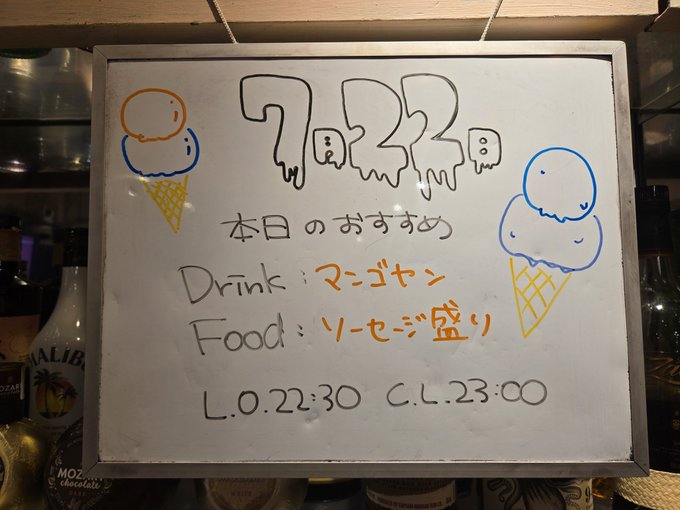 7.22.
本日のおすすめ
Drink: マンゴヤン
Food: ソーセージ盛り
L.O.22:30 C.L.23:00
MALIBU
MOZART
MOZART
chocolate